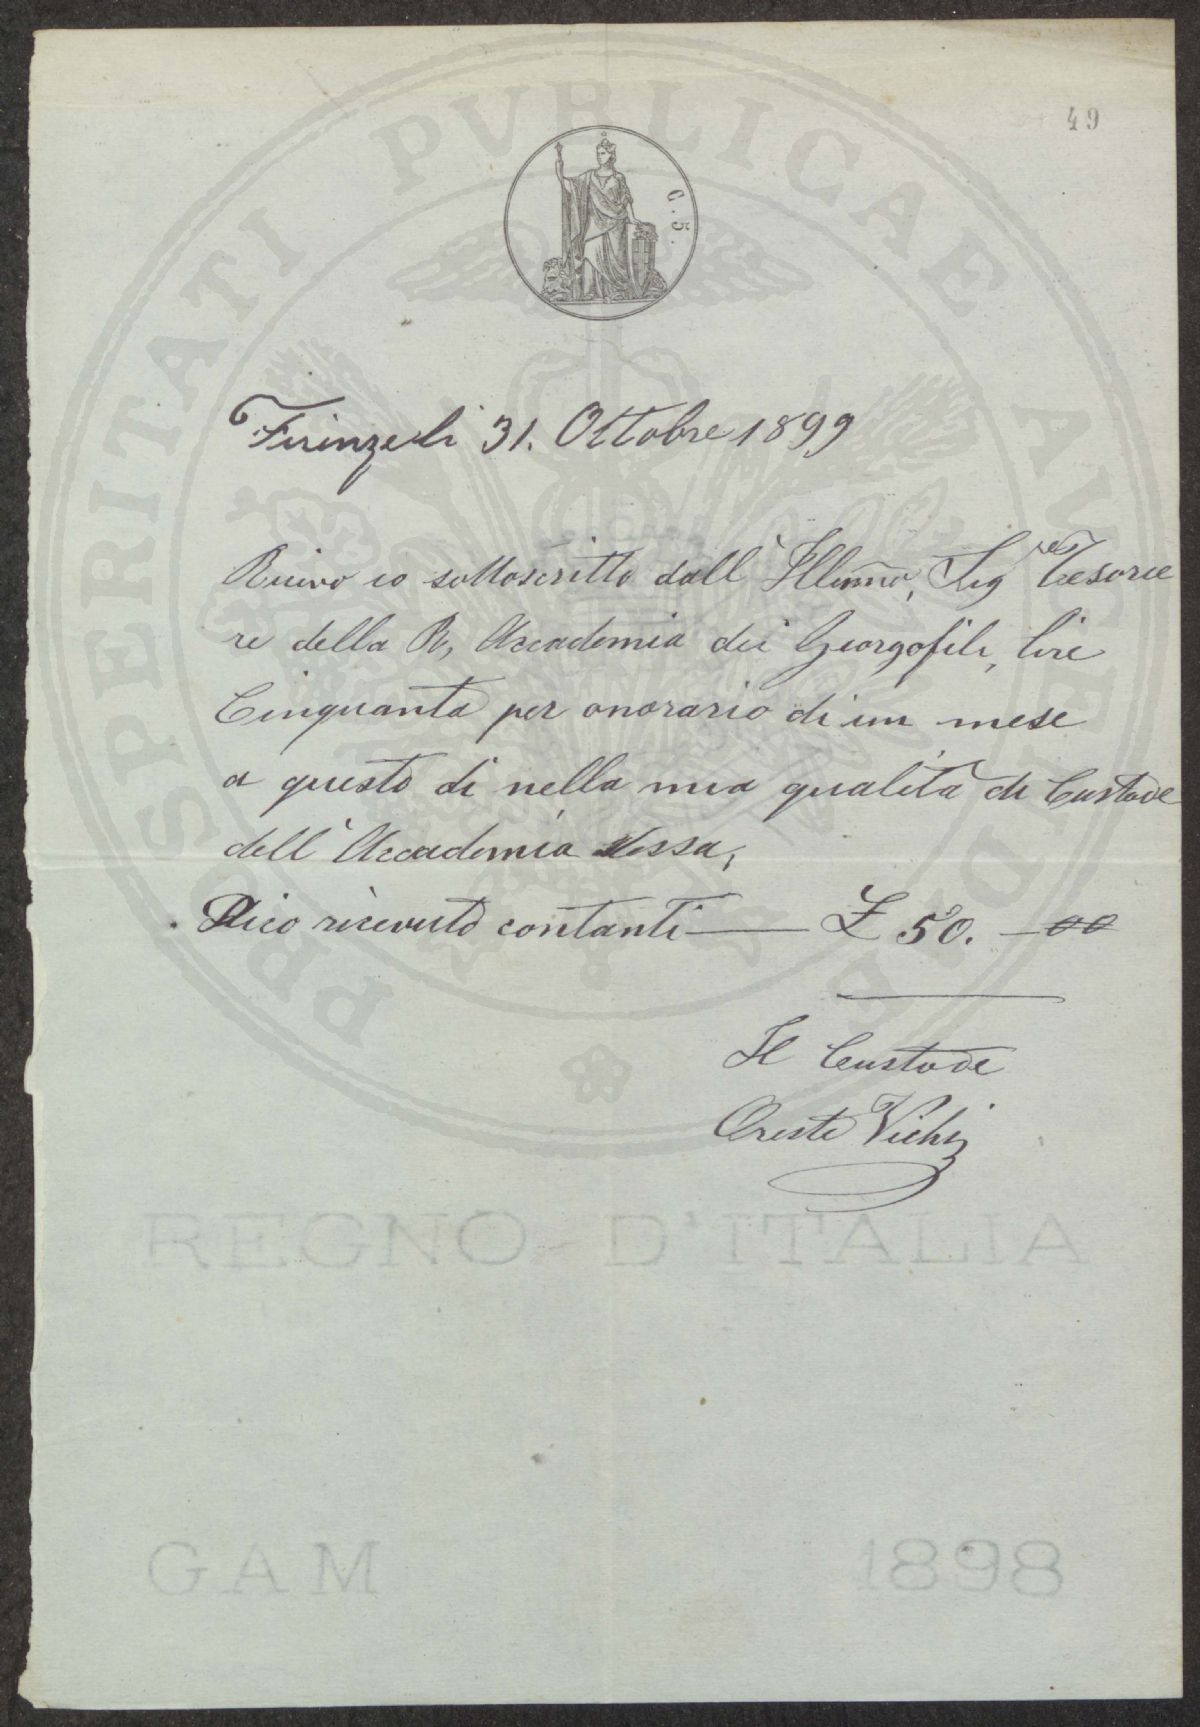 49
C. 5.
Firenze li 31. Ottobre 1899
Ricevo io sottoscritto dall' Illumño, Sig Tesorie
re della R, Accademia dei Georgofili, lire
Cinquanta per onorario di un mese
a questo dì nella mia qualità di Custode
dell' Accademia stessa,
Dico ricevuto contanti — £ 50. — 00
Il Custode
Oreste Vichi
PROSPERITATI PVBLICAE AVGENDAE
REGNO D'ITALIA
GAM 1898